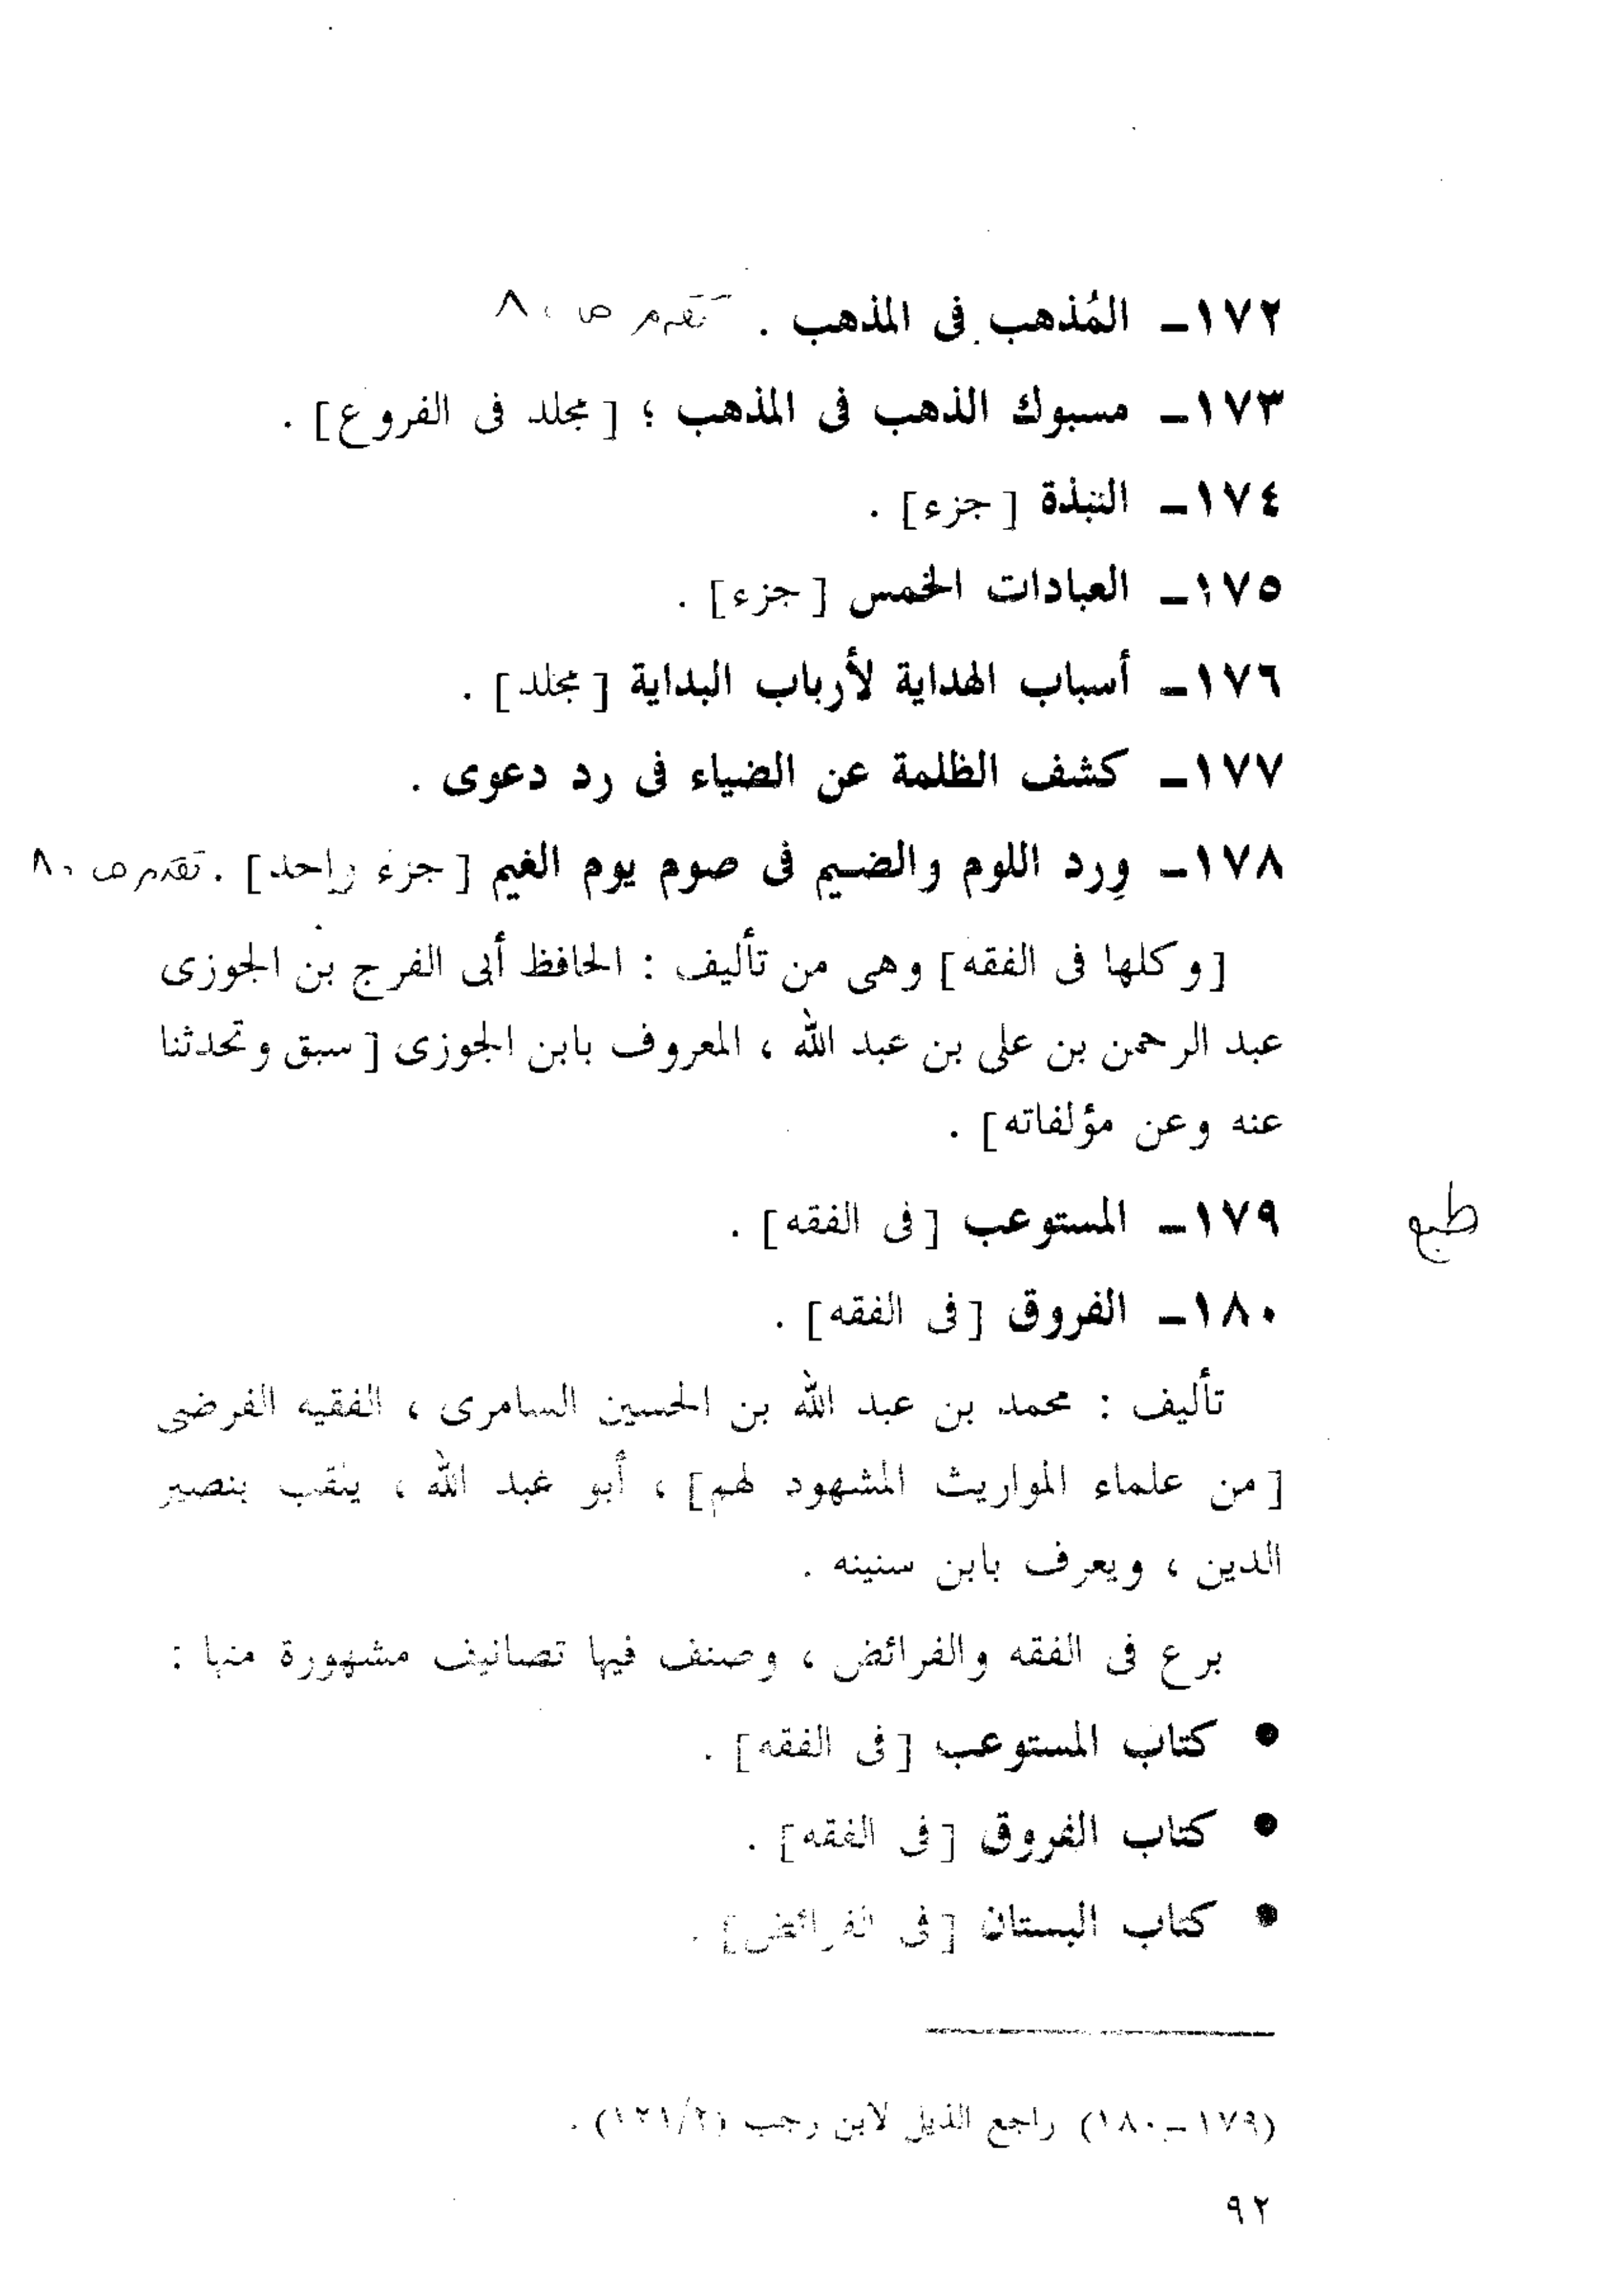 ١٧٢ـ المُذهب فى المذهب . تقدم ص ٨٠
١٧٣ـ مسبوك الذهب فى المذهب ؛ [ مجلد فى الفروع ] .
١٧٤ـ النبذة [ جزء ] .
١٧٥ـ العبادات الخمس [ جزء ] .
١٧٦ـ أسباب الهداية لأرباب البداية [ مجلد ] .
١٧٧ـ كشف الظلمة عن الضياء فى رد دعوى .
١٧٨ـ وِرد اللوم والضيم فى صوم يوم الغيم [ جزء واحد ] . تقدم ص ٨٠
[ وكلها فى الفقه ] وهى من تأليف : الحافظ أبى الفرج بن الجوزى
عبد الرحمن بن على بن عبد الله ، المعروف بابن الجوزى [ سبق وتحدثنا
عنه وعن مؤلفاته ] .
١٧٩ـ المستوعب [ فى الفقه ] . طبع
١٨٠ـ الفروق [ فى الفقه ] .
تأليف : محمد بن عبد الله بن الحسين السامرى ، الفقيه الفرضى
[ من علماء المواريث المشهود لهم ] ، أبو عبد الله ، يلقب بنصير
الدين ، ويعرف بابن سنينه .
برع فى الفقه والفرائض ، وصنف فيها تصانيف مشهورة منها :
● كتاب المستوعب [ فى الفقه ] .
● كتاب الفروق [ فى الفقه ] .
● كتاب البستان [ فى الفرائض ] .
(١٧٩ـ١٨٠) راجع الذيل لابن رجب (١٢١/٢) .
٩٢